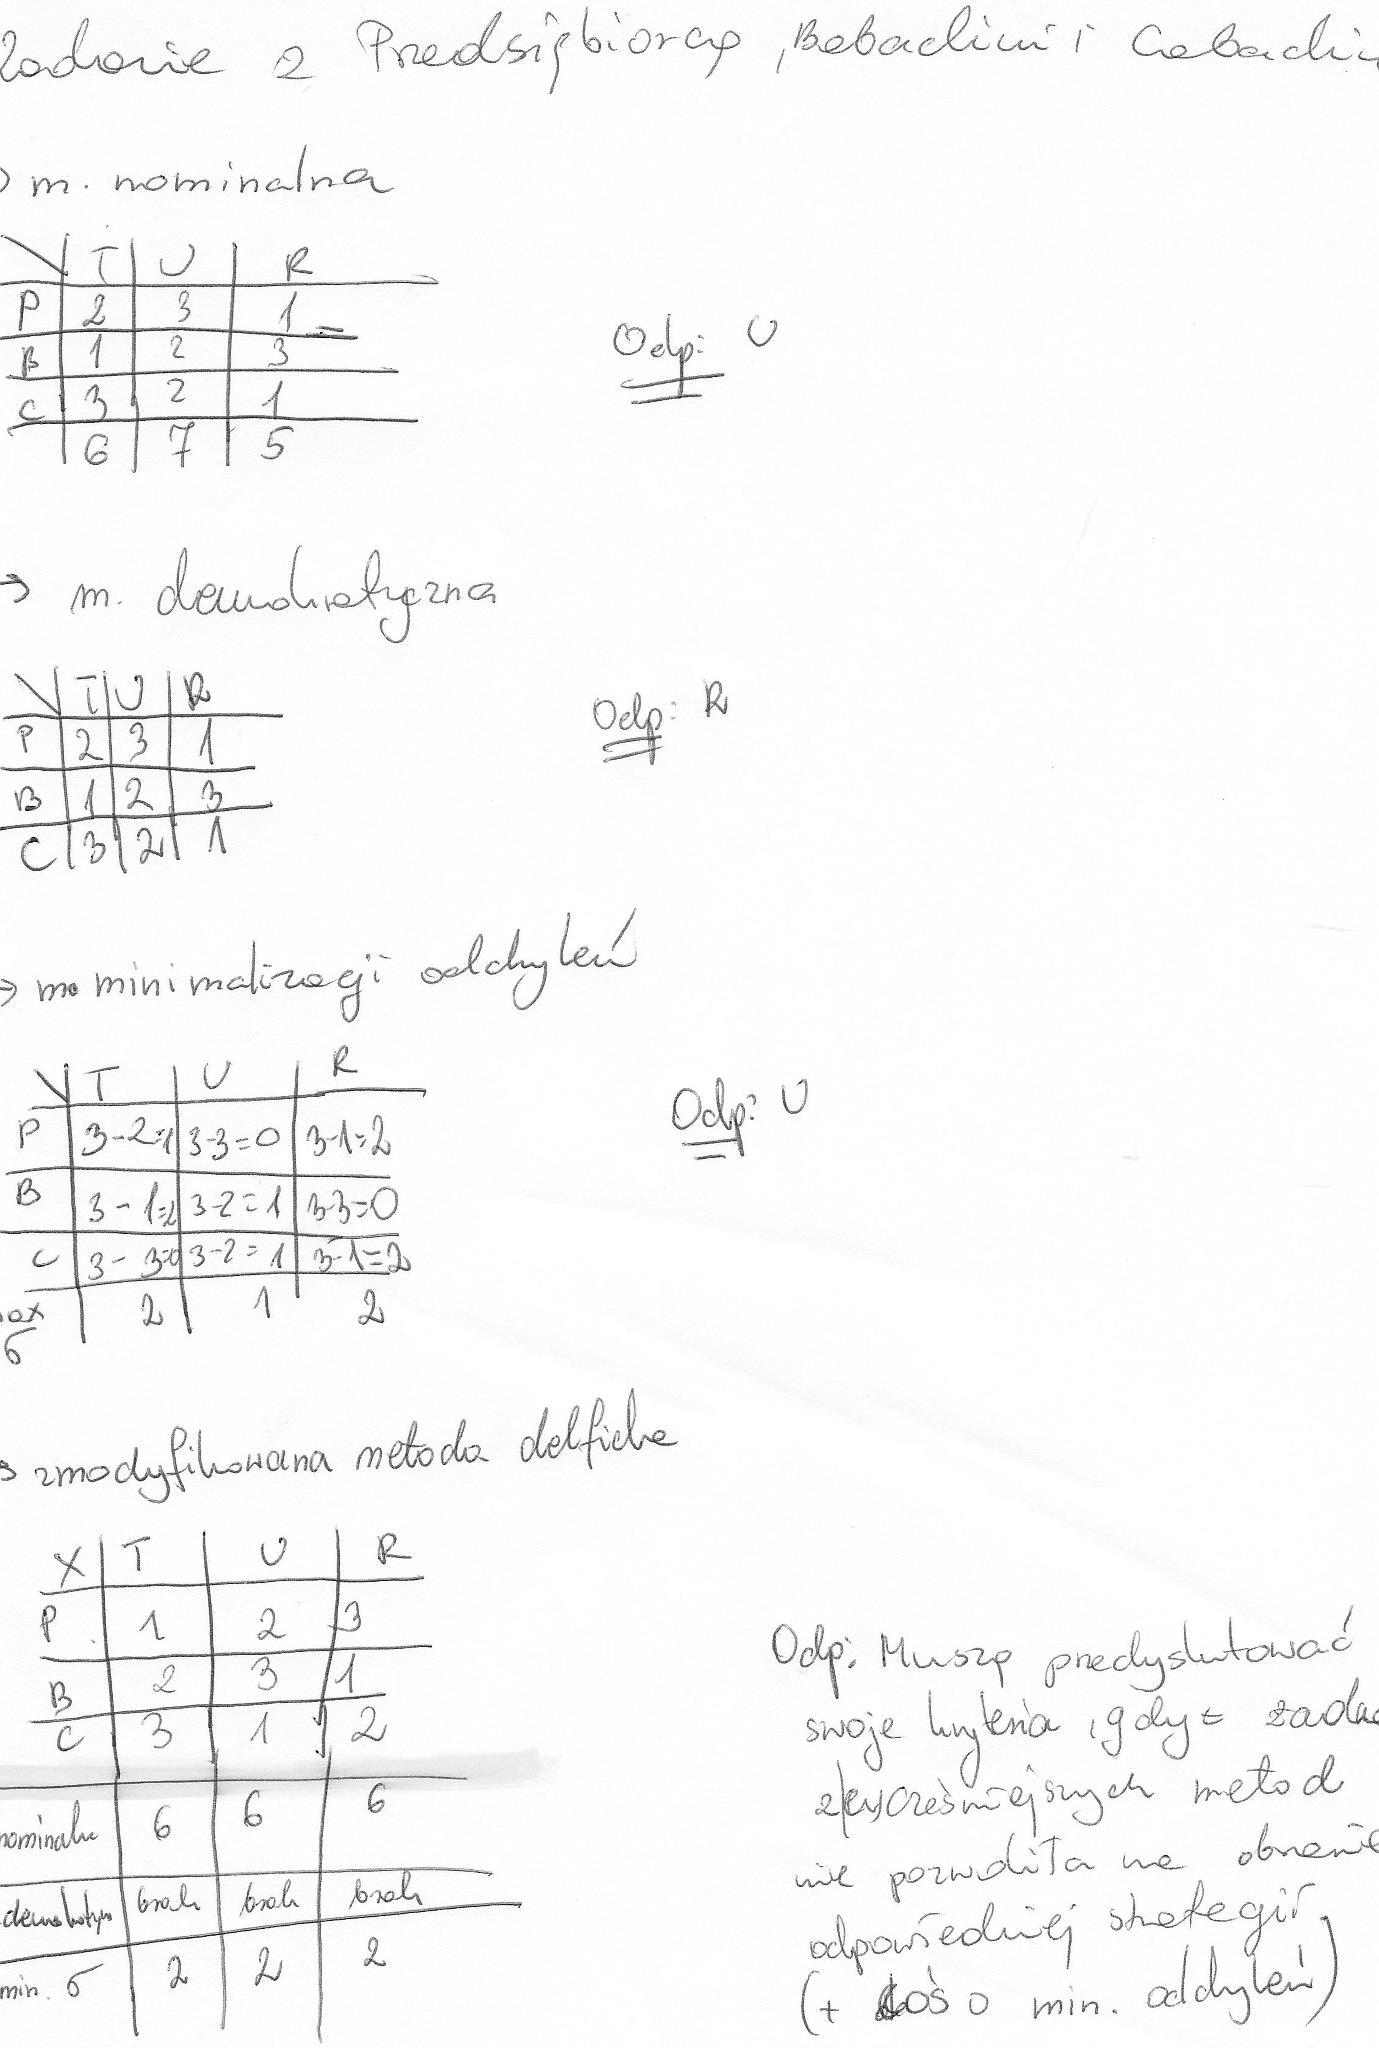 Zadanie 2 Przedsiębiorcę, Babacki i Cabacki
→ m. nominalna
T U R
P 2 3 1
B 1 2 3
C 3 2 1
6 7 5
Odp: U
→ m. demokratyczna
T U R
P 2 3 1
B 1 2 3
C 3 2 1
Odp: R
→ m. minimalizacji odchyleń
T U R
P 3-2=1 3-3=0 3-1=2
B 3-1=2 3-2=1 3-3=0
C 3-3=0 3-2=1 3-1=2
max 2 1 2
σ
Odp: U
→ zmodyfikowana metoda delficka
X T U R
P 1 2 3
B 2 3 1
C 3 1 2
nominalna 6 6 6
demokratycz brak brak brak
min. σ 2 2 2
Odp: Muszę przedyskutować
swoje kryteria, gdyż żadna
z wcześniejszych metod
nie pozwoliła na obranie
odpowiedniej strategii
(+ coś o min. odchyleń)